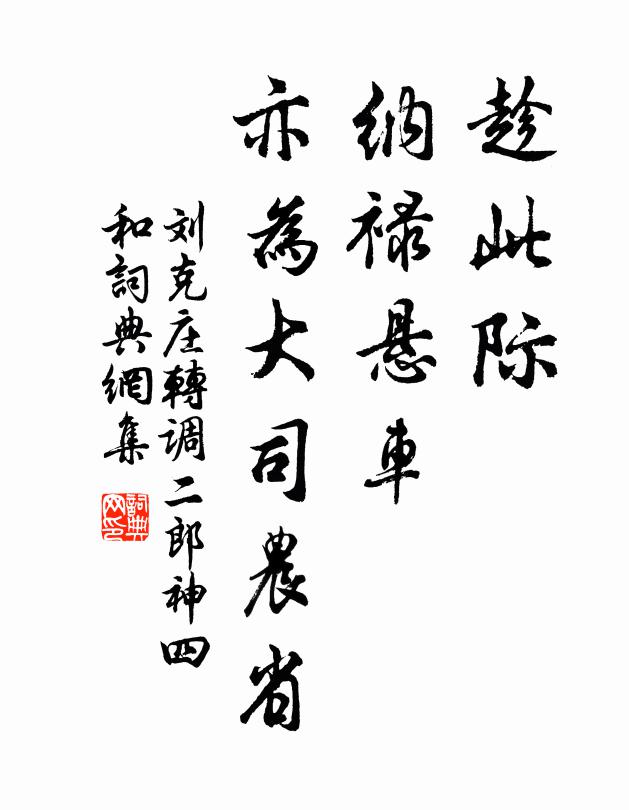 趁此际
纳禄悬車
亦為大司農省
刘克庄轉调二郎神四
和詞典網集
詞典网印